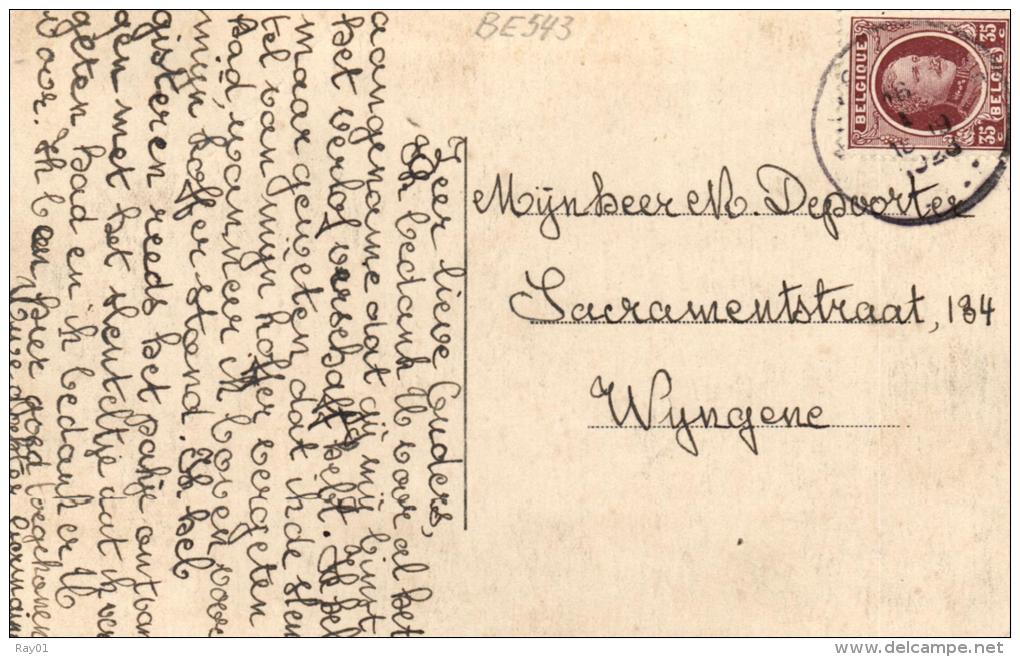 BE543
BELGIQUE
BELGIE
35 c
35 c
1929
Mijnheer M. Depoorter
Sacramentstraat, 134
Wyngene
Zeer lieve Ouders,
Ik bedank U voor al het
aangename dat dij mij tint
het verlof verschaft hebt. Ik heb
maar geweten dat ik de sleu
tel van mijn koffer vergeten
had wanneer ik boven voor
mijn koffer stond. Ik heb
gisteren reeds het pakje ontvan
gen met het sleuteltje dat ik ver
geten had en ik bedank er U
voor. Ik ben hier goed toegekomen
Uwe
Ray01